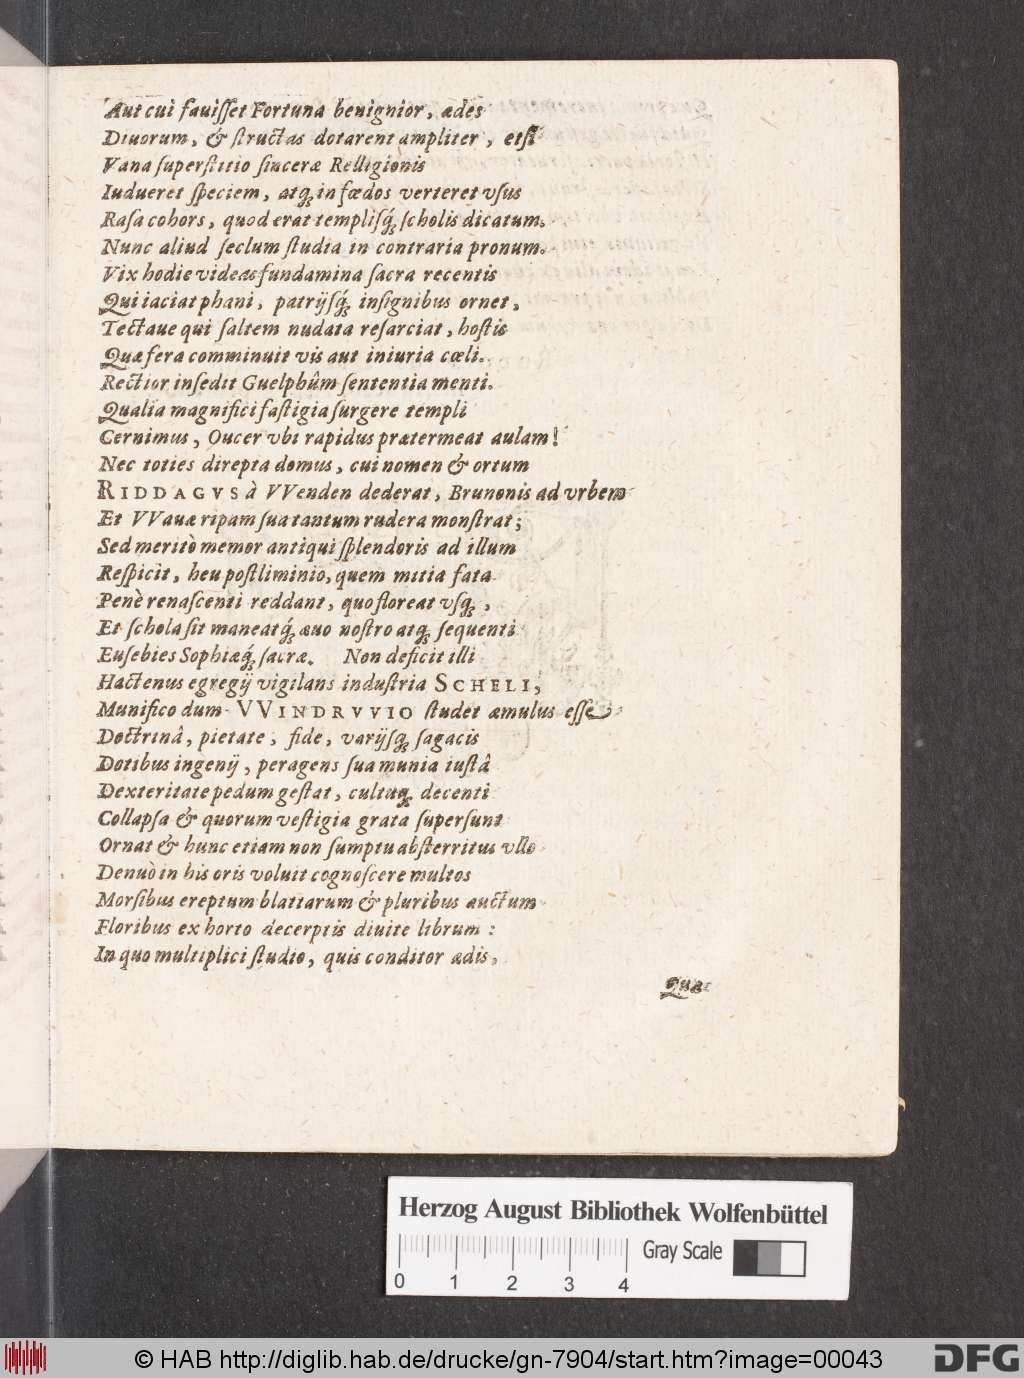 Aut cui fauiſſet Fortuna benignior, ædes
Diuorum, & ſtructas dotarent ampliter, etſi
Vana ſuperſtitio ſinceræ Relligionis
Indueret ſpeciem, atq́; in fœdos verteret vſus
Raſa cohors, quod erat templiſq́; ſcholis dicatum.
Nunc aliud ſeclum ſtudia in contraria pronum.
Vix hodie videas fundamina ſacra recentis
Qui iaciat phani, patrijſq́; inſignibus ornet,
Tectaue qui ſaltem nudata reſarciat, hoſtis
Quæ fera comminuit vis aut iniuria cœli.
Rectior inſedit Guelphûm ſententia menti.
Qualia magnifici faſtigia ſurgere templi
Cernimus, Oucer vbi rapidus prætermeat aulam!
Nec toties direpta domus, cui nomen & ortum
RIDDAGVS à VVenden dederat, Brunonis ad vrbem
Et VVauæ ripam ſua tantum rudera monſtrat;
Sed meritò memor antiqui ſplendoris ad illum
Reſpicit, heu poſtliminio, quem mitia fata
Penè renaſcenti reddant, quo floreat vſq́;,
Et ſchola ſit maneatq́; æuo noſtro atq́; ſequenti
Euſebies Sophiæq́; ſacræ. Non deficit illi
Hactenus egregij vigilans induſtria SCHELI,
Munifico dum VVINDRVVIO ſtudet æmulus eſſe
Doctrinâ, pietate, fide, varijſq́; ſagacis
Dotibus ingenij, peragens ſua munia iuſtâ
Dexteritate pedum geſtat, cultuq́; decenti
Collapſa & quorum veſtigia grata ſuperſunt
Ornat & hunc etiam non ſumptu abſterritus vllo
Denuò in his oris voluit cognoſcere multos
Morſibus ereptum blattarum & pluribus auctum
Floribus ex horto decerptis diuite librum:
In quo multiplici ſtudio, quis conditor ædis,
Quæ
Herzog August Bibliothek Wolfenbüttel
Gray Scale
0 1 2 3 4
© HAB http://diglib.hab.de/drucke/gn-7904/start.htm?image=00043
DFG